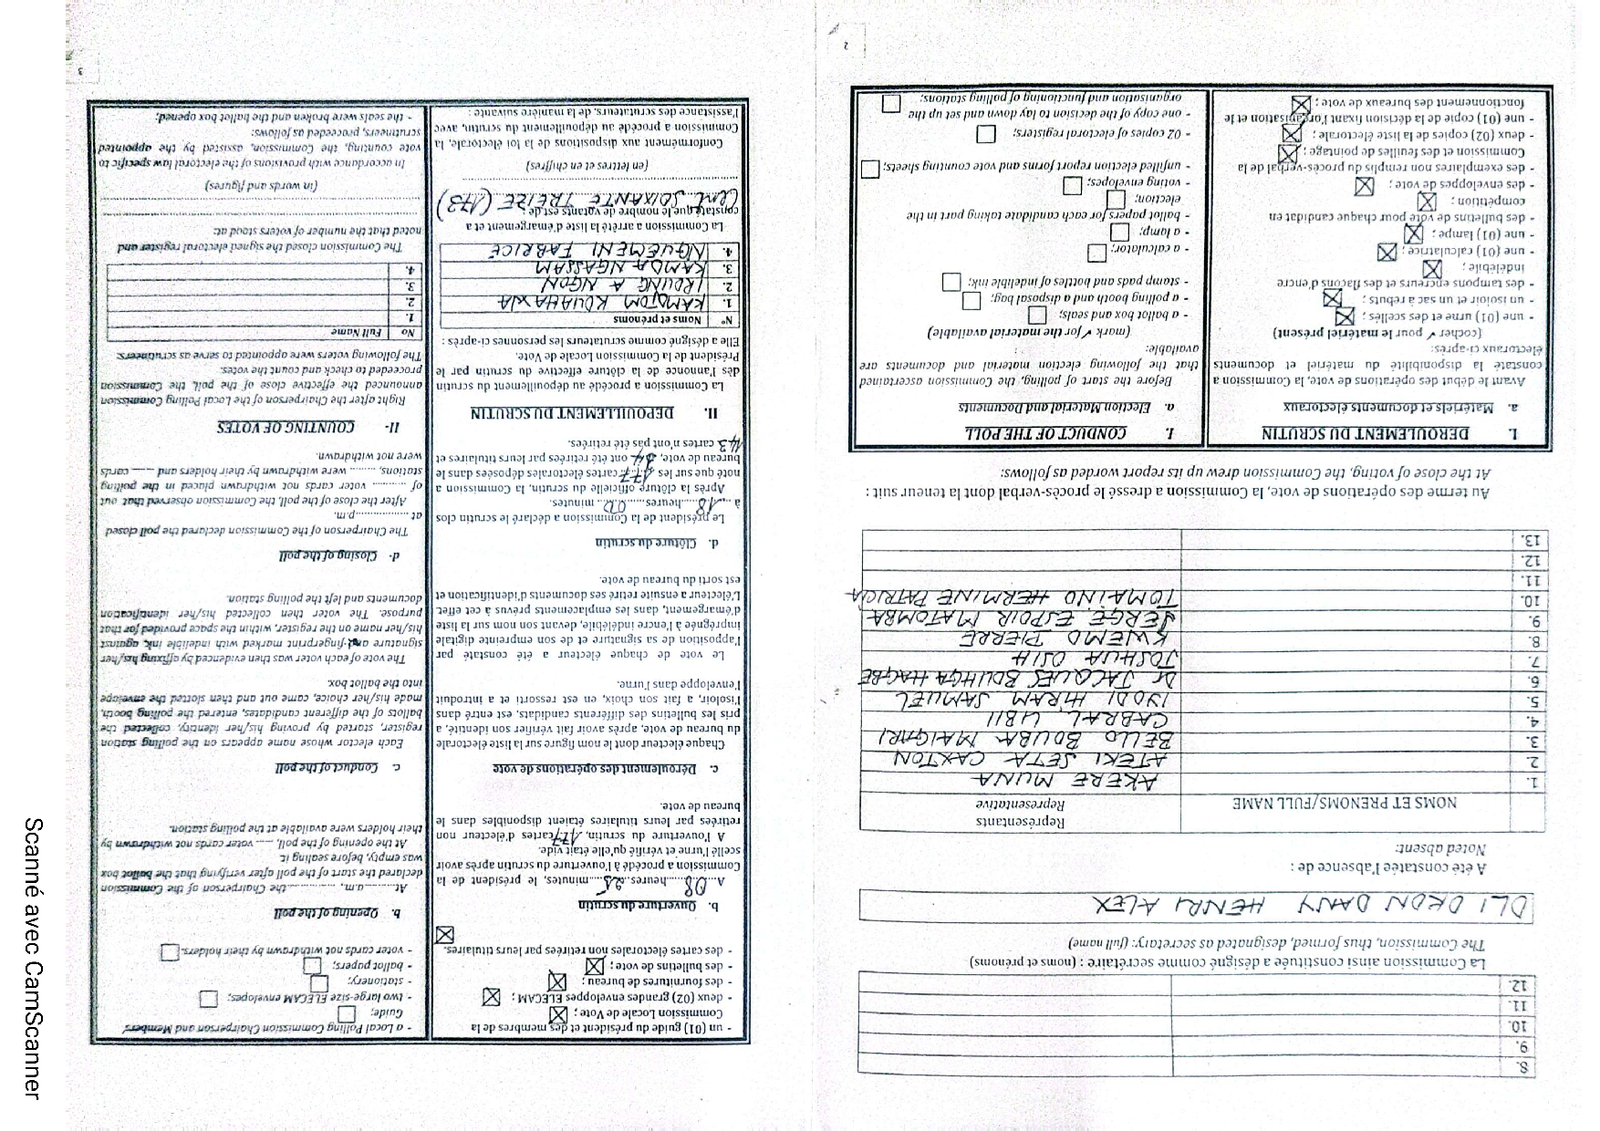 8.
9.
10.
11.
12.
La Commission ainsi constituée a désigné comme secrétaire : (noms et prénoms)
The Commission, thus formed, designated as secretary: (full name)
DLI DRON DANY HENRI ALEX
A été constatée l'absence de :
Noted absent:
NOMS ET PRENOMS/FULL NAME
Représentants
Représentative
1. AKERE MUNA
2. ATEKI SETA CAXTON
3. BELLO BOUBA MAIGARI
4. CABRAL LIBII
5. IYODI HIRAM SAMUEL
6. Dr JACQUES BOUHGA HAGBE
7. JOSHUA OSIH
8. KWEMO PIERRE
9. SERGE ESPOIR MATOMBA
10. TOMAÏNO HERMINE PATRICIA
11.
12.
13.
Au terme des opérations de vote, la Commission a dressé le procès-verbal dont la teneur suit :
At the close of voting, the Commission drew up its report worded as follows:
I. DEROULEMENT DU SCRUTIN
a. Matériels et documents électoraux
Avant le début des opérations de vote, la Commission a
constaté la disponibilité du matériel et documents
électoraux ci-après:
(cocher ✓ pour le matériel présent)
- une (01) urne et des scellés ;
- un isoloir et un sac à rebuts ;
- des tampons encreurs et des flacons d'encre
indélébile ;
- une (01) calculatrice ;
- une (01) lampe ;
- des bulletins de vote pour chaque candidat en
compétition ;
- des enveloppes de vote ;
- des exemplaires non remplis du procès-verbal de la
Commission et des feuilles de pointage ;
- deux (02) copies de la liste électorale ;
- une (01) copie de la décision fixant l'organisation et le
fonctionnement des bureaux de vote ;
I. CONDUCT OF THE POLL
a. Election Material and Documents
Before the start of polling, the Commission ascertained
that the following election material and documents are
available:
(mark ✓ for the material available)
- a ballot box and seals;
- a polling booth and a disposal bag;
- stamp pads and bottles of indelible ink;
- a calculator;
- a lamp;
- ballot papers for each candidate taking part in the
election;
- voting envelopes;
- unfilled election report forms and vote counting sheets;
- 02 copies of electoral registers;
- one copy of the decision to lay down and set up the
organisation and functioning of polling stations;
2
- un (01) guide du président et des membres de la
Commission Locale de Vote ;
- deux (02) grandes enveloppes ELECAM ;
- des fournitures de bureau ;
- des bulletins de vote ;
- des cartes électorales non retirées par leurs titulaires.
b. Ouverture du scrutin
A 08 heures 25 minutes, le président de la
Commission a procédé à l'ouverture du scrutin après avoir
scellé l'urne et vérifié qu'elle était vide.
A l'ouverture du scrutin, 177 cartes d'électeur non
retirées par leurs titulaires étaient disponibles dans le
bureau de vote.
c. Déroulement des opérations de vote
Chaque électeur dont le nom figure sur la liste électorale
du bureau de vote, après avoir fait vérifier son identité, a
pris les bulletins des différents candidats, est entré dans
l'isoloir, a fait son choix, en est ressorti et a introduit
l'enveloppe dans l'urne.
Le vote de chaque électeur a été constaté par
l'apposition de sa signature et de son empreinte digitale
imprégnée à l'encre indélébile, devant son nom sur la liste
d'émargement, dans les emplacements prévus à cet effet.
L'électeur a ensuite retiré ses documents d'identification et
est sorti du bureau de vote.
d. Clôture du scrutin
Le président de la Commission a déclaré le scrutin clos
à 18 heures 00 minutes.
Après la clôture officielle du scrutin, la Commission a
noté que sur les 177 cartes électorales déposées dans le
bureau de vote, 34 ont été retirées par leurs titulaires et
143 cartes n'ont pas été retirées.
II. DEPOUILLEMENT DU SCRUTIN
La Commission a procédé au dépouillement du scrutin
dès l'annonce de la clôture effective du scrutin par le
Président de la Commission Locale de Vote.
Elle a désigné comme scrutateurs les personnes ci-après :
N° Noms et prénoms
1. KAMDOM KOUAHAXIA
2. IROUNG A NGON
3. KAMDA NGASSAM
4. NGUEMENI FABRICE
La Commission a arrêté la liste d'émargement et a
constaté que le nombre de votants est de :
Cent SOIXANTE TREIZE (173)
(en lettres et en chiffres)
Conformément aux dispositions de la loi électorale, la
Commission a procédé au dépouillement du scrutin, avec
l'assistance des scrutateurs, de la manière suivante :
- a Local Polling Commission Chairperson and Members'
Guide;
- two large-size ELECAM envelopes;
- stationery;
- ballot papers;
- voter cards not withdrawn by their holders.
b. Opening of the poll
At ........a.m, ............the Chairperson of the Commission
declared the start of the poll after verifying that the ballot box
was empty, before sealing it.
At the opening of the poll, ...... voter cards not withdrawn by
their holders were available at the polling station.
c. Conduct of the poll
Each elector whose name appears on the polling station
register, started by proving his/her identity, collected the
ballots of the different candidates, entered the polling booth,
made his/her choice, came out and then slotted the envelope
into the ballot box.
The vote of each voter was then evidenced by affixing his/her
signature and fingerprint marked with indelible ink, against
his/her name on the register, within the space provided for that
purpose. The voter then collected his/her identification
documents and left the polling station.
d- Closing of the poll
The Chairperson of the Commission declared the poll closed
at ................p.m.
After the close of the poll, the Commission observed that out
of .......... voter cards not withdrawn placed in the polling
stations, ........ were withdrawn by their holders and ...... cards
were not withdrawn.
II- COUNTING OF VOTES
Right after the Chairperson of the Local Polling Commission
announced the effective close of the poll, the Commission
proceeded to check and count the votes.
The following voters were appointed to serve as scrutineers:
No Full Name
1.
2.
3.
4.
The Commission closed the signed electoral register and
noted that the number of voters stood at:
(in words and figures)
In accordance with provisions of the electoral law specific to
vote counting, the Commission, assisted by the appointed
scrutineers, proceeded as follows:
- the seals were broken and the ballot box opened;
3
Scanné avec CamScanner